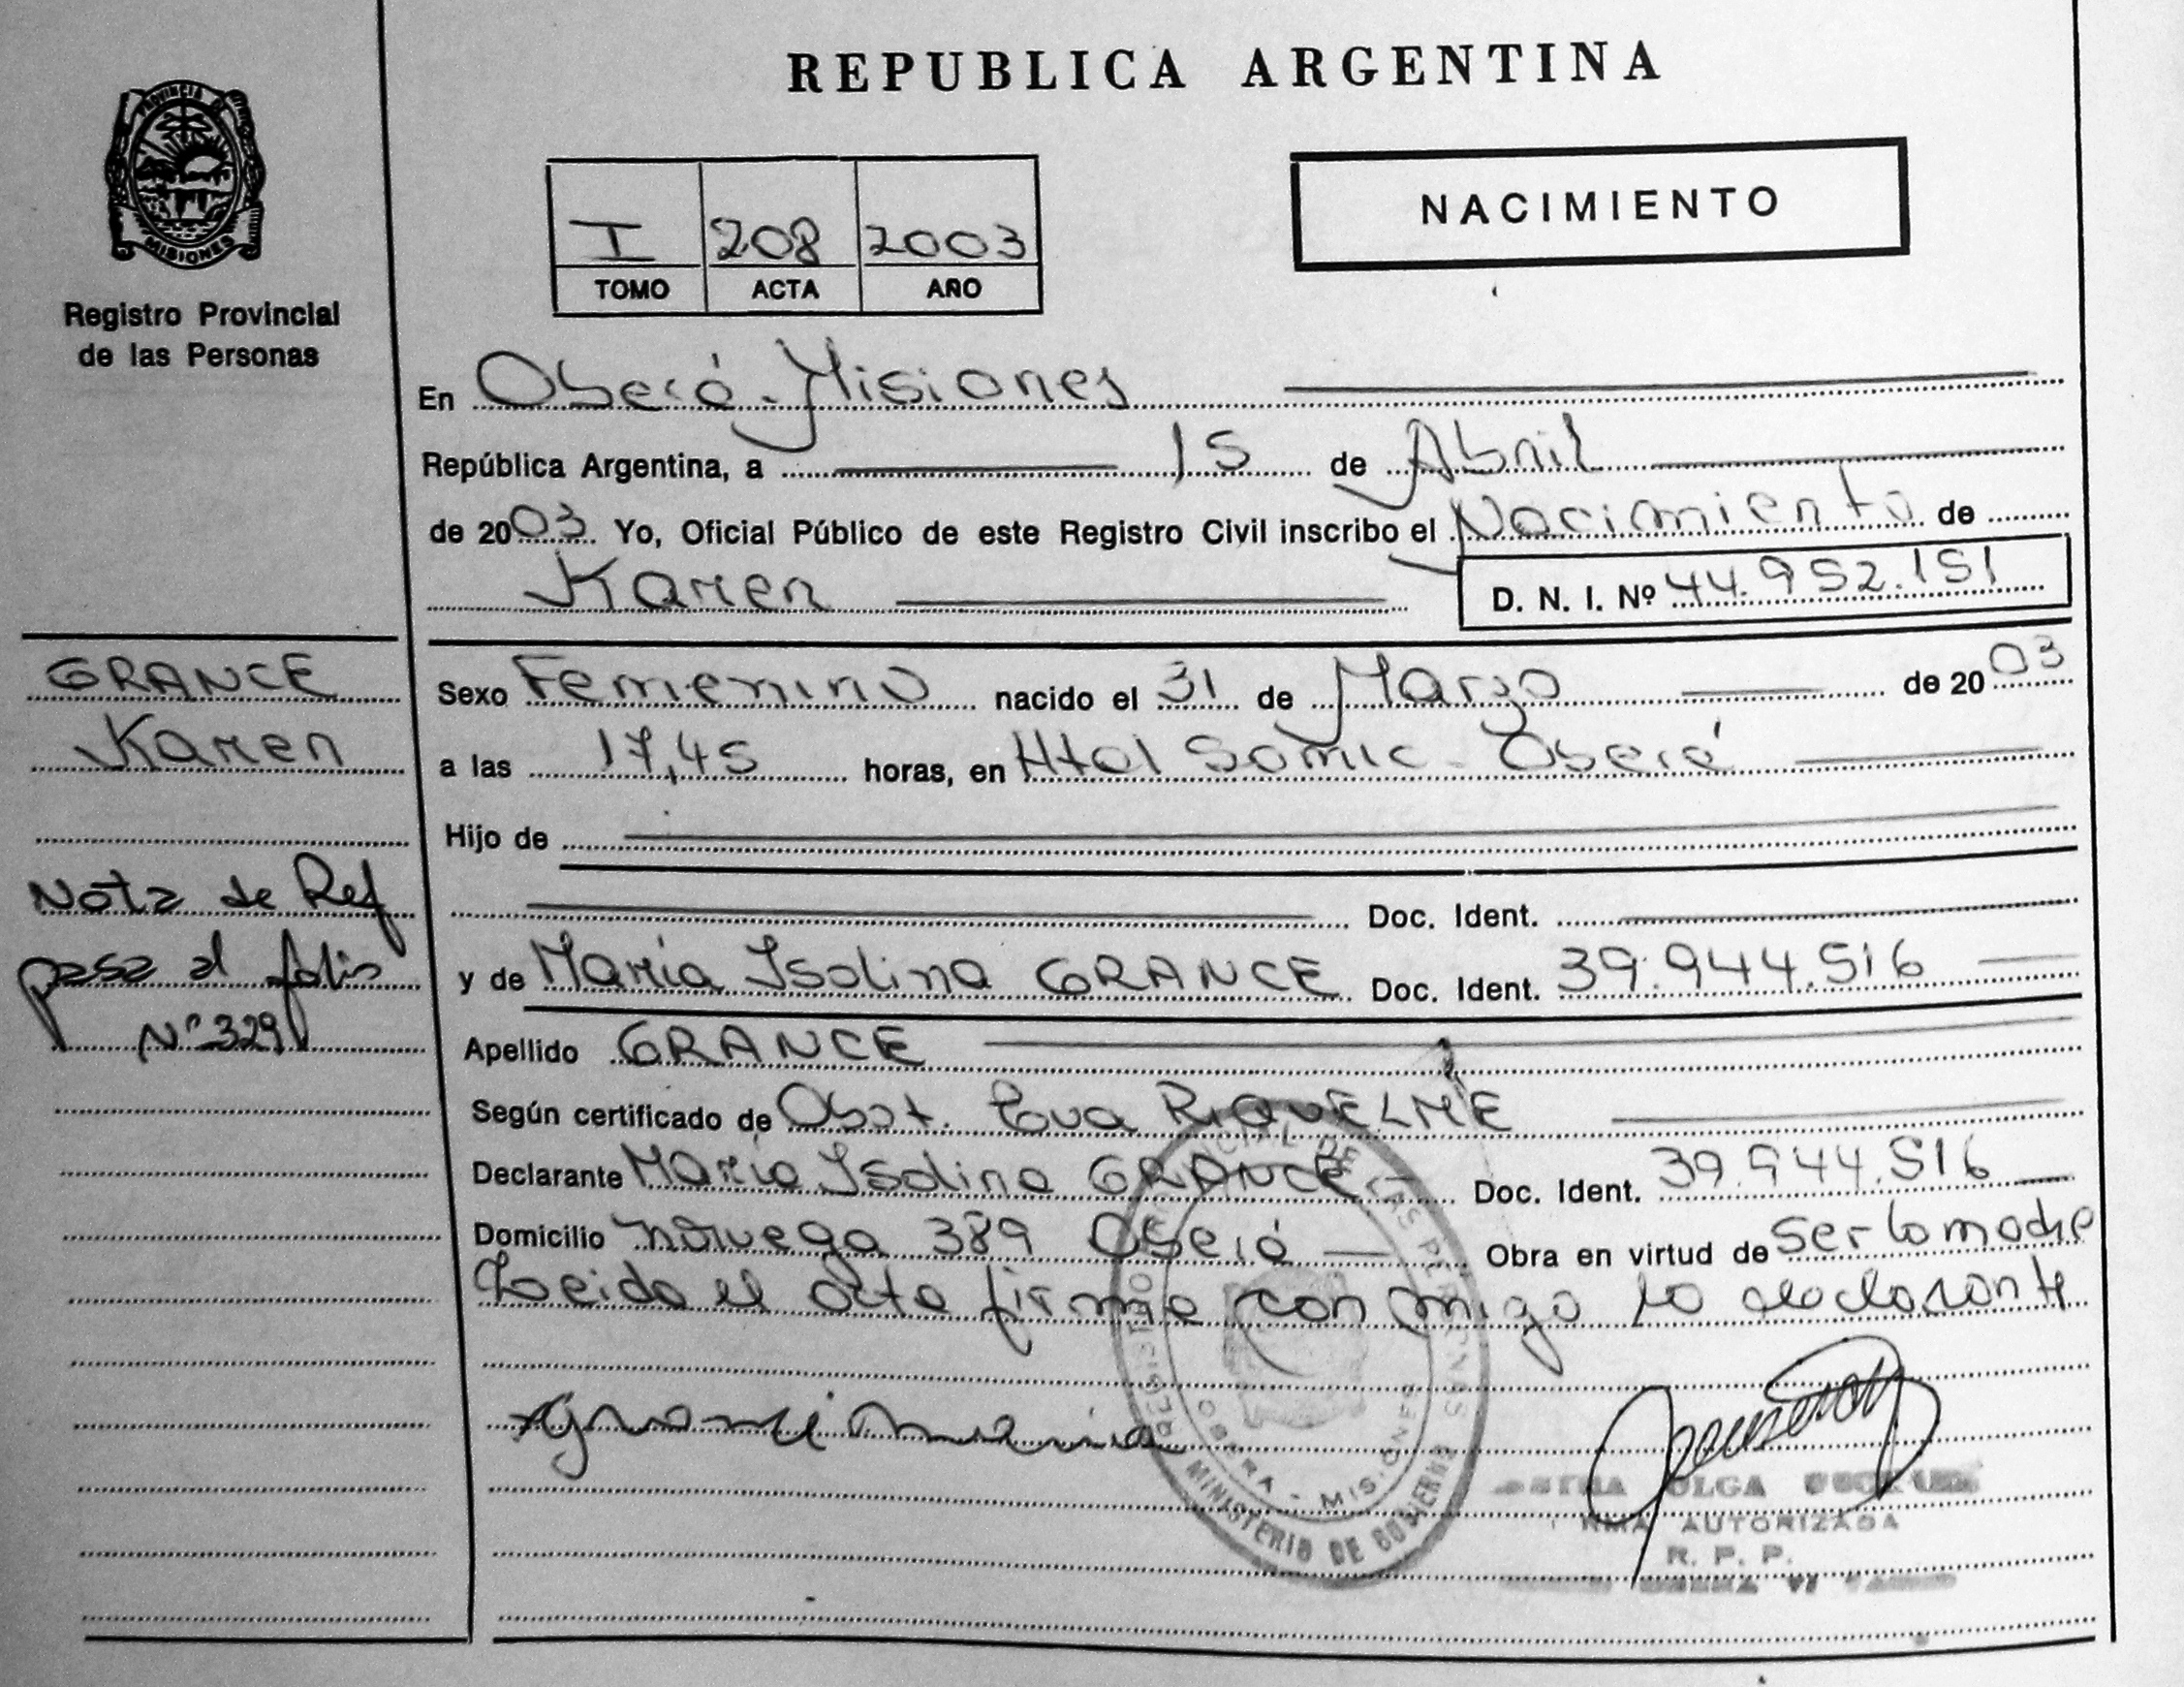 REPUBLICA ARGENTINA
PROVINCIA DE
MISIONES
Registro Provincial
de las Personas
NACIMIENTO
I 208 2003
TOMO ACTA AÑO
En Oberá - Misiones
República Argentina, a 15 de Abril
de 2003 Yo, Oficial Público de este Registro Civil inscribo el Nacimiento de
Karen
D. N. I. Nº 44.952.151
GRANCE
Karen
Nota de Ref
pasa al folio
Nº 329
Sexo Femenino nacido el 31 de Marzo de 2003
a las 17,45 horas, en Htal Samic - Oberá
Hijo de
Doc. Ident.
y de María Isolina GRANCE Doc. Ident. 39.944.516
Apellido GRANCE
Según certificado de Obst. Eva RIQUELME
Declarante María Isolina GRANCE Doc. Ident. 39.944.516
Domicilio Noruega 389 Oberá Obra en virtud de ser la madre
Leida el acta firma con migo la declarante
REGISTRO DE LAS PERSONAS
OBERA - MISIONES
MINISTERIO DE GOBIERNO
OLGA
AUTORIZADA
R. P. P.